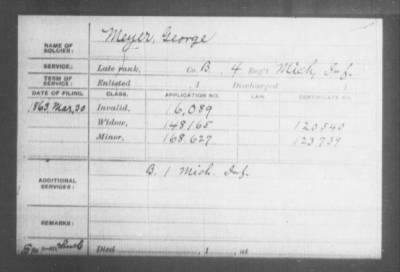 NAME OF SOLDIER: Meyer, George
SERVICE: Late rank, Co. B, 4 Reg't Mich. Inf.
TERM OF SERVICE: Enlisted , 1 Discharged , 1
DATE OF FILING. CLASS. APPLICATION NO. LAW. CERTIFICATE NO.
1863, Mar, 30 Invalid, 16,089
Widow, 148165 120840
Minor, 168.627 123739
ADDITIONAL SERVICES: B. 1 Mich. Inf.
REMARKS:
Died , 1 , at